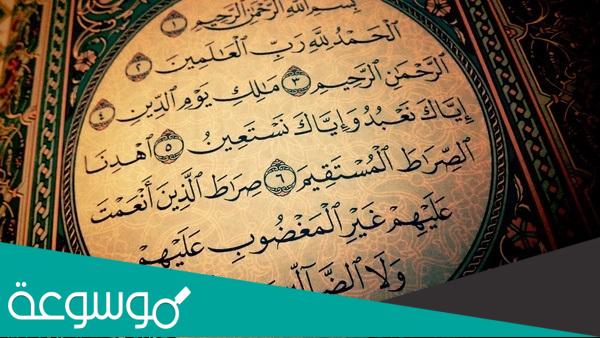 بِسْمِ ٱللَّهِ ٱلرَّحْمَٰنِ ٱلرَّحِيمِ ١
ٱلْحَمْدُ لِلَّهِ رَبِّ ٱلْعَٰلَمِينَ ٢
ٱلرَّحْمَٰنِ ٱلرَّحِيمِ ٣ مَٰلِكِ يَوْمِ ٱلدِّينِ ٤
إِيَّاكَ نَعْبُدُ وَإِيَّاكَ نَسْتَعِينُ ٥ ٱهْدِنَا
ٱلصِّرَٰطَ ٱلْمُسْتَقِيمَ ٦ صِرَٰطَ ٱلَّذِينَ أَنْعَمْتَ
عَلَيْهِمْ غَيْرِ ٱلْمَغْضُوبِ عَلَيْهِمْ
وَلَا
موسوعة